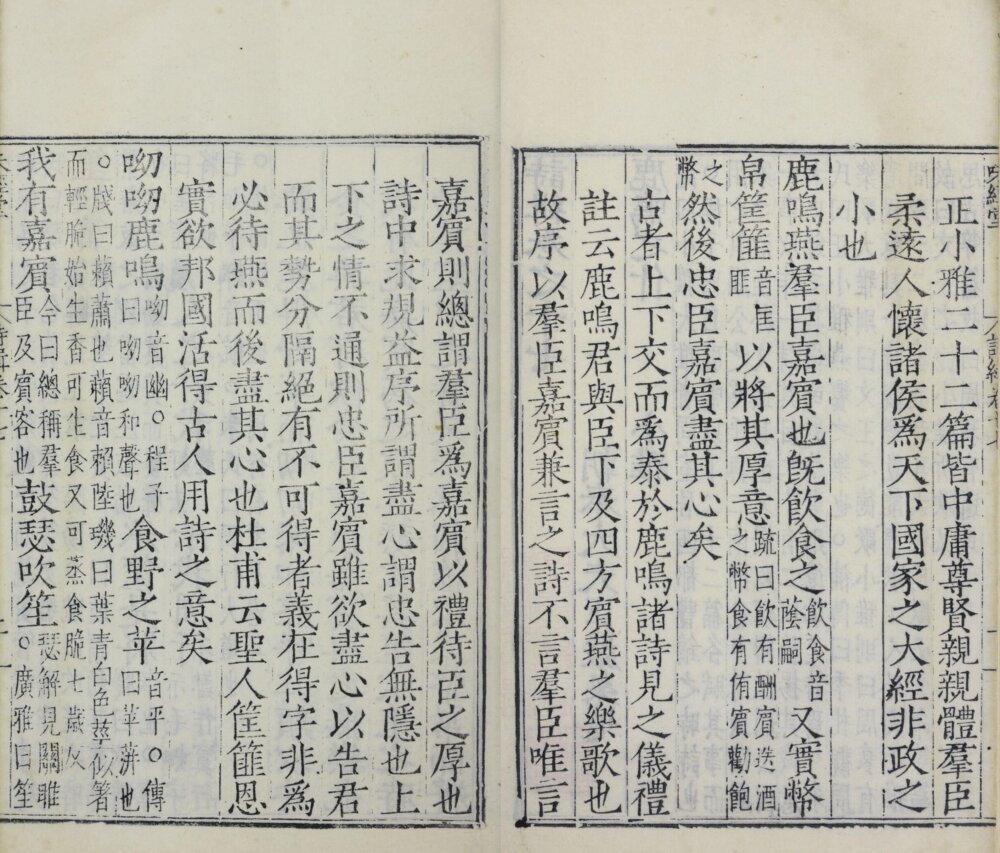 正小雅二十二篇皆中庸尊賢親親體羣臣
柔逺人懷諸侯為天下國家之大經非政之
小也
鹿鳴燕羣臣嘉賔也旣飲食之飲食音䕃嗣又實幣
帛筐篚音匡匪以將其厚意疏曰飲有酬賔送酒之幣食有侑賔勸飽
之幣然後忠臣嘉賔盡其心矣
古者上下交而爲泰於鹿鳴諸詩見之儀禮
註云鹿鳴君與臣下及四方賔燕之樂歌也
故序以羣臣嘉賔兼言之詩不言羣臣唯言
嘉賔則總謂羣臣爲嘉賔以禮待臣之厚也
詩中求規益序所謂盡心謂忠告無隱也上
下之情不通則忠臣嘉賔雖欲盡心以告君
而其勢分隔絕有不可得者義在得字非爲
必待燕而後盡其心也杜甫云聖人筐篚恩
實欲邦國活得古人用詩之意矣
呦呦鹿鳴呦音幽○程子曰呦呦和聲也食野之苹音平○傳曰苹蓱也
○牋曰藾蕭也藾音賴陸璣曰葉青白色莖似箸
而輕脆始生香可生食又可蒸食脆七歲反
我有嘉賔今曰總稱羣臣及賔客也鼓瑟吹笙瑟解見關雎○廣雅曰笙